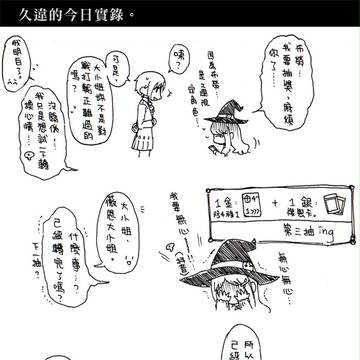 久違的今日實錄。
布勞！
我要抽獎，麻煩
你了……
因為布勞
是2週現
定角色
咦？
可是，
大小姐妳不是對
戰打輸正難過的
嗎？
沒關係…
我只是想試一下轉
換心情…
我明白了…
1金：
1銀：
復甦卡。
第三抽 ing
心無…
心無…
我要無心…!!!
大小姐、
微恩大小姐。
什麼事…？
已經轉完了嗎？
下一抽？
所以
已經